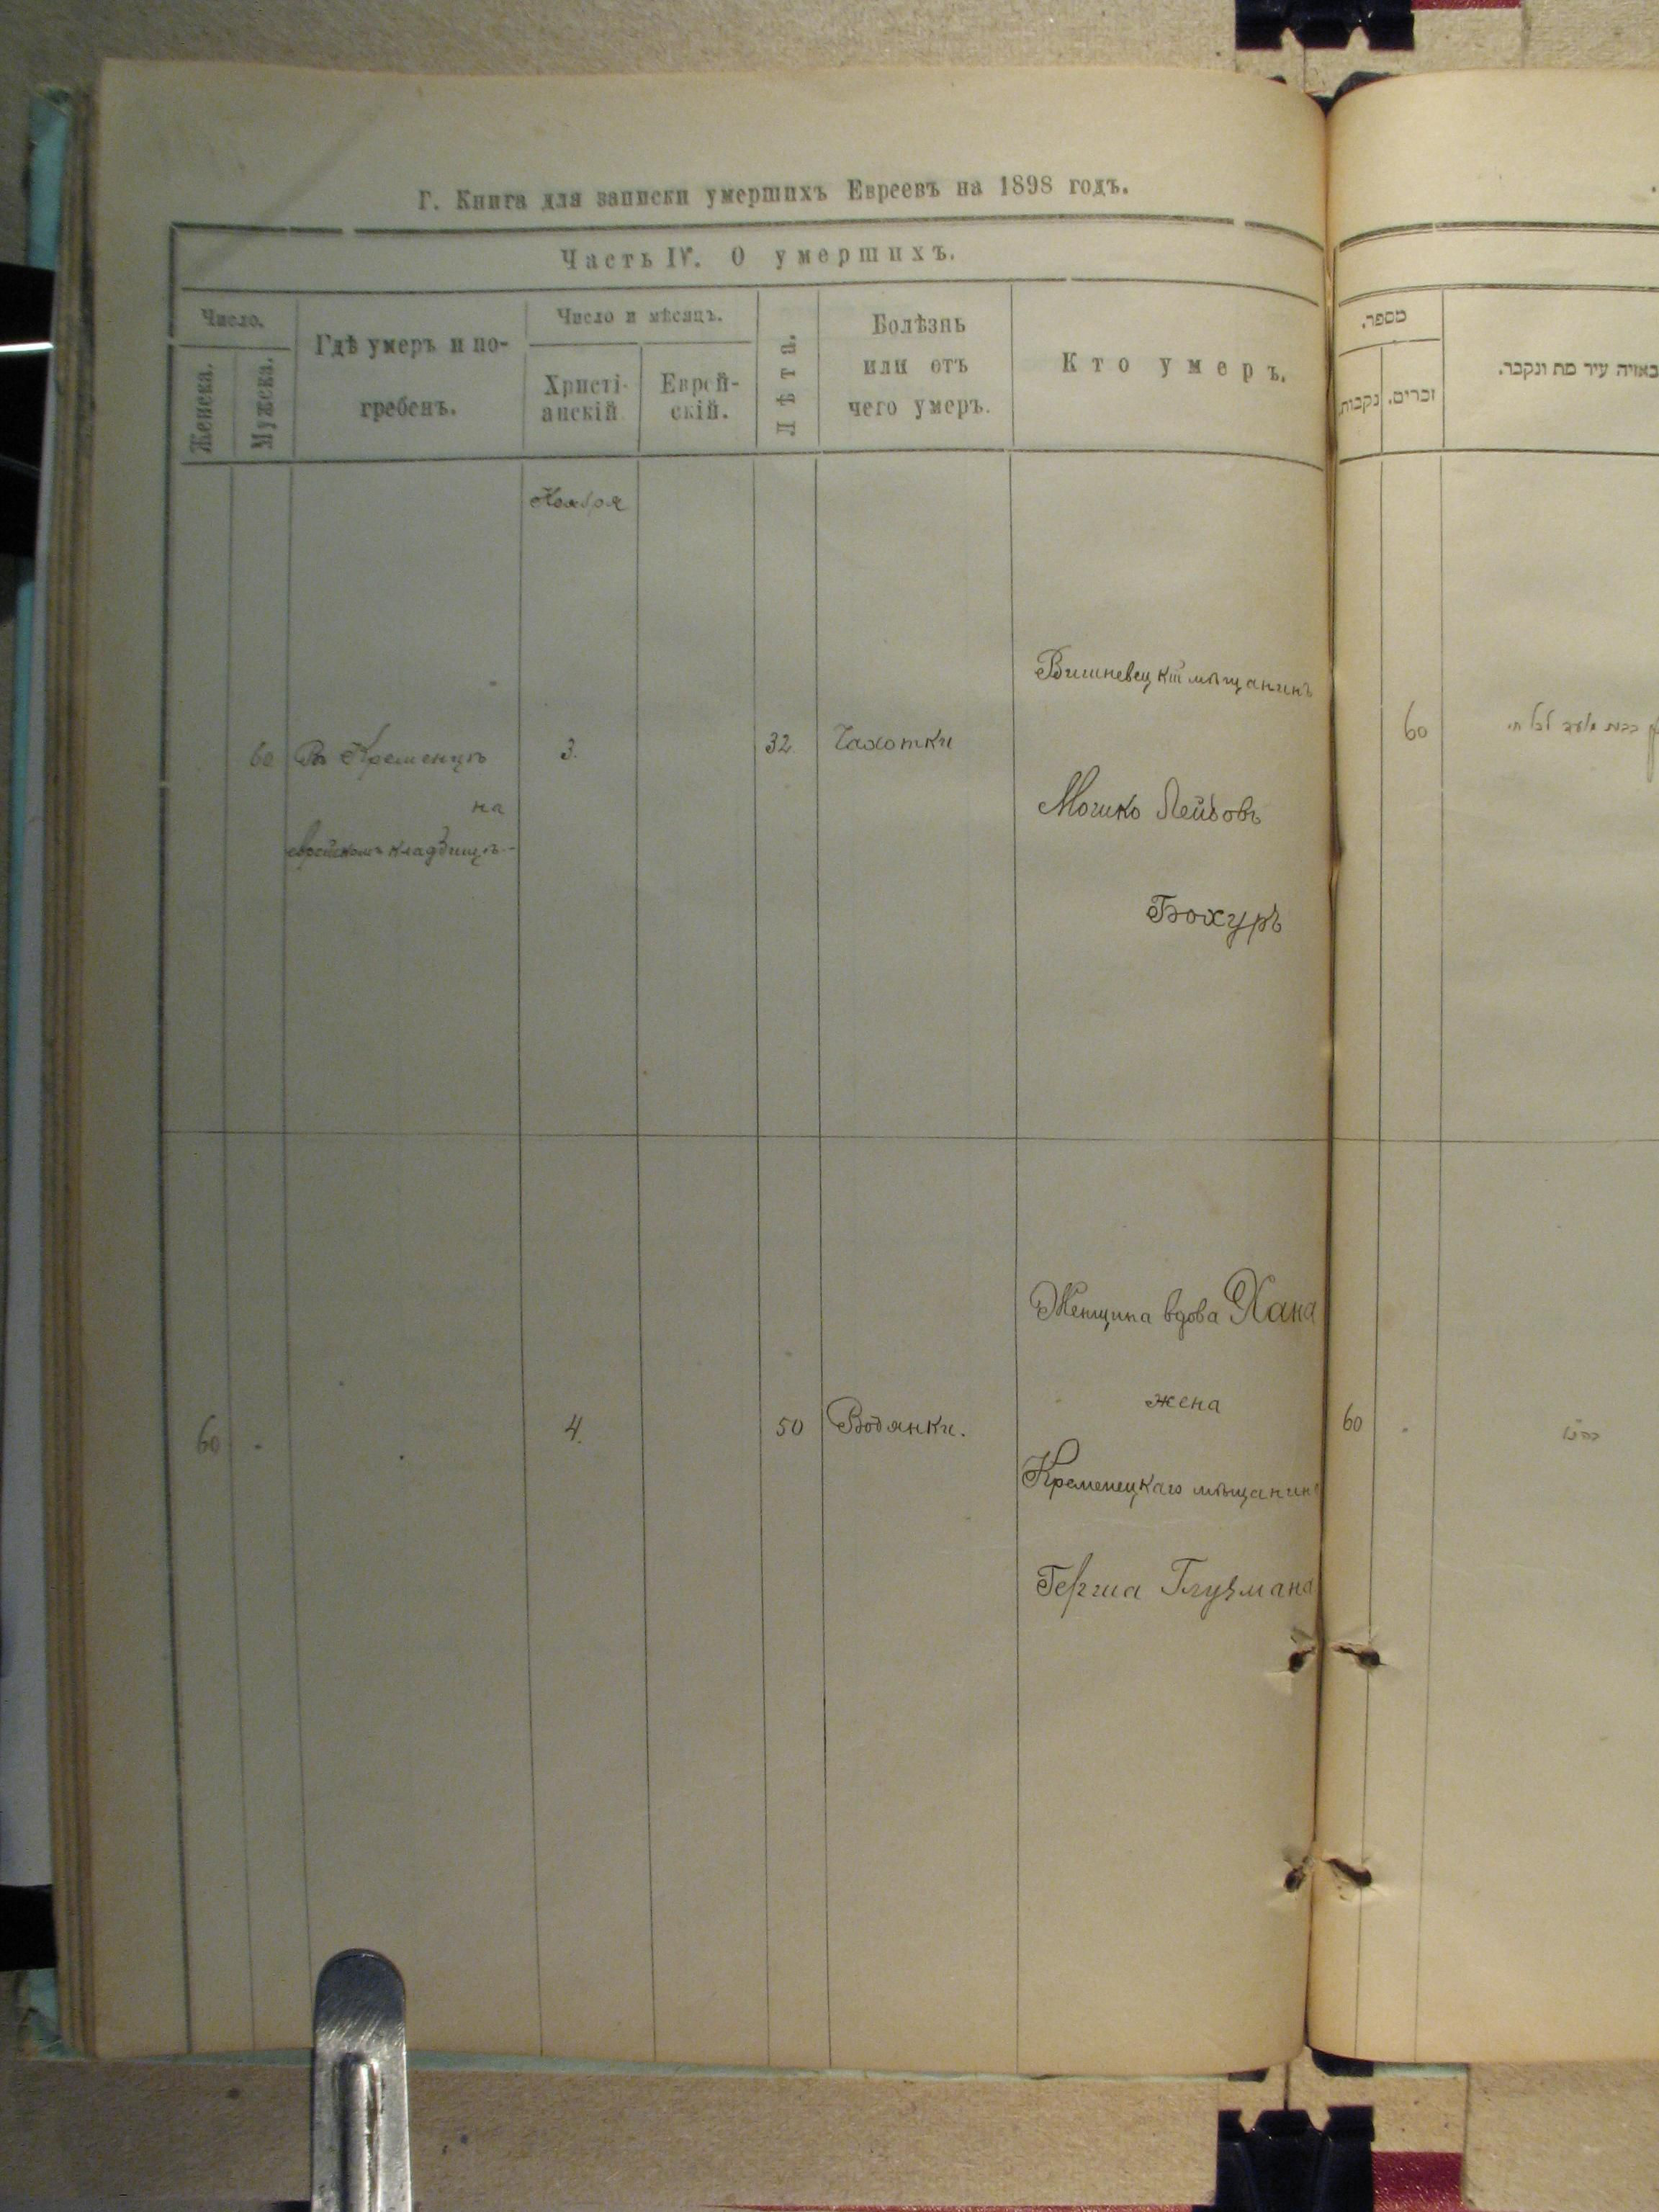 Г. Книга для записки умершихъ Евреевъ на 1898 годъ.
Часть IV. О умершихъ.
Число.
Женска.
Мужска.
Гдѣ умеръ и по-
гребенъ.
Число и мѣсяцъ.
Христі-
анскій
Еврей-
скій.
Лѣта.
Болѣзнь
или отъ
чего умеръ.
Кто умеръ.
Ноября
60
Въ Кременцѣ
на
еврейскомъ кладбищѣ
3.
32.
Чахотки
Вишневецкій мѣщанинъ
Мошко Лейбовъ
Бохуръ
60
4.
50
Водянки.
Женщина вдова Хана
жена
Кременецкаго мѣщанина
Герша Глузмана
מספר.
נקבות.
זכרים.
באיזה עיר מת ונקבר.
60
60